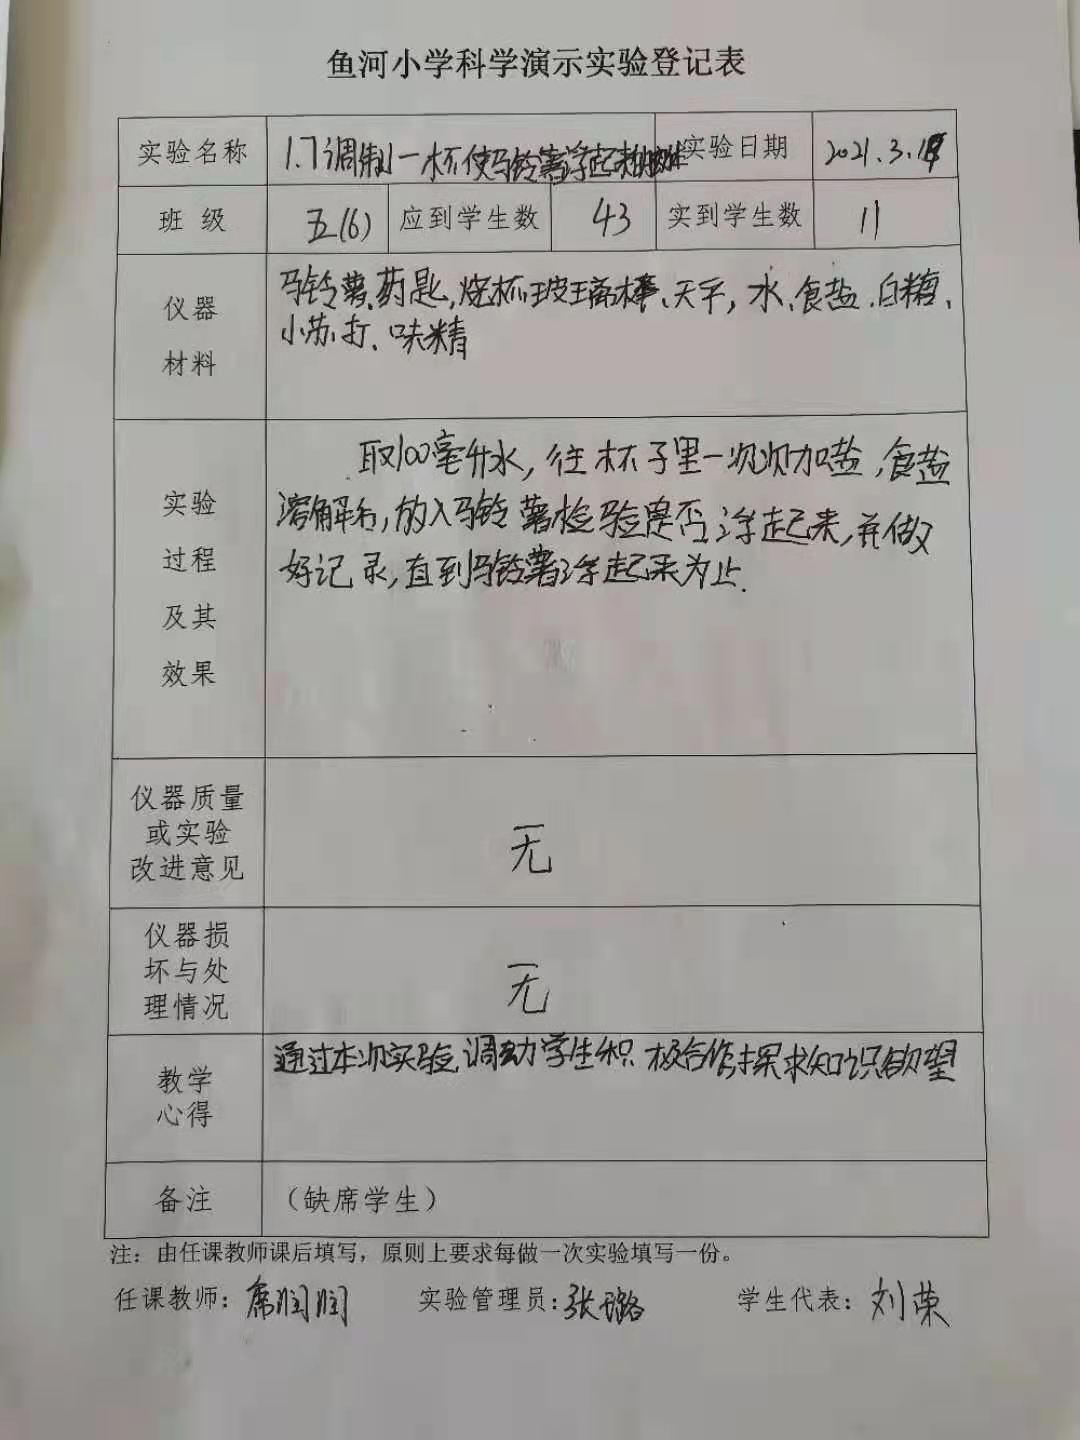 鱼河小学科学演示实验登记表
实验名称 1.7调制一杯使马铃薯浮起来的 实验日期 2021.3.
班 级 五(6) 应到学生数 43 实到学生数 11
仪器
材料
马铃薯、药匙,烧杯玻璃棒、天平,水、食盐、白糖、
小苏打、味精
实验
过程
及其
效果
取100毫升水,往杯子里一次次加盐,食盐
溶解后,放入马铃薯检验是否浮起来,并做
好记录,直到马铃薯浮起来为止.
仪器质量
或实验
改进意见
无
仪器损
坏与处
理情况
无
教学
心得
通过本次实验,调动学生积极合作探求知识欲望
备注 (缺席学生)
注:由任课教师课后填写,原则上要求每做一次实验填写一份。
任课教师:席 实验管理员:张璐 学生代表:刘荣